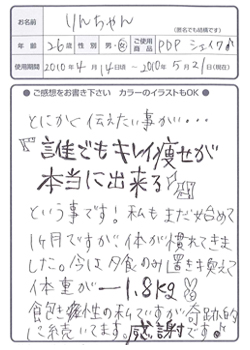 お名前 りんちゃん
(匿名でも結構です)
年齢 26歳 性別 男・女 ご使用商品 PDP シェイク♪
使用期間 2010年4月14日頃 ~ 2010年5月21日(現在)
●ご感想をお書き下さい カラーのイラストもOK●
とにかく伝えたい事が・・・
『誰でもキレイ痩せが
本当に出来る』
という事です!私もまだ始めて
1ヶ月ですが、体が慣れてきま
した。今は夕食のみ置き換えで
体重が―1.8kg
飽き症の私ですが奇跡的
に続いてます。感謝です♪